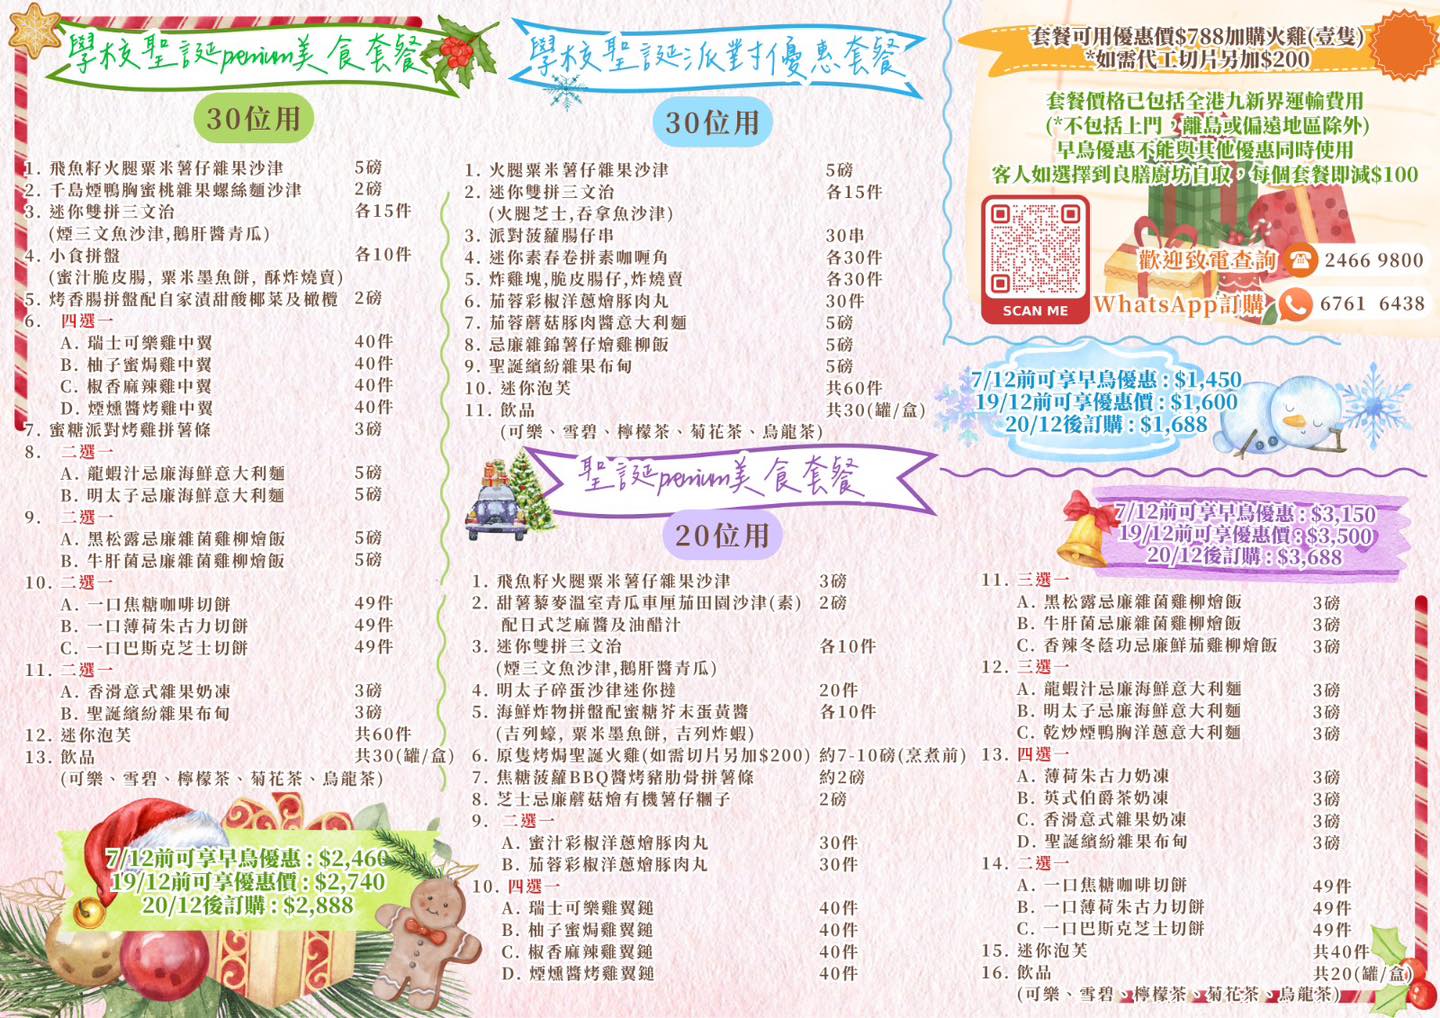 學校聖誕premium美食套餐
30位用
1. 飛魚籽火腿粟米薯仔雜果沙津 5磅
2. 千島煙鴨胸蜜桃雜果螺絲麵沙津 2磅
3. 迷你雙拼三文治 各15件
(煙三文魚沙津,鵝肝醬青瓜)
4. 小食拼盤 各10件
(蜜汁脆皮腸, 粟米墨魚餅, 酥炸燒賣)
5. 烤香腸拼盤配自家漬甜酸椰菜及橄欖 2磅
6. 四選一
A. 瑞士可樂雞中翼 40件
B. 柚子蜜焗雞中翼 40件
C. 椒香麻辣雞中翼 40件
D. 煙燻醬烤雞中翼 40件
7. 蜜糖派對烤雞拼薯條 3磅
8. 二選一
A. 龍蝦汁忌廉海鮮意大利麵 5磅
B. 明太子忌廉海鮮意大利麵 5磅
9. 二選一
A. 黑松露忌廉雜菌雞柳燴飯 5磅
B. 牛肝菌忌廉雜菌雞柳燴飯 5磅
10. 二選一
A. 一口焦糖咖啡切餅 49件
B. 一口薄荷朱古力切餅 49件
C. 一口巴斯克芝士切餅 49件
11. 二選一
A. 香滑意式雜果奶凍 3磅
B. 聖誕繽紛雜果布甸 3磅
12. 迷你泡芙 共60件
13. 飲品 共30(罐/盒)
(可樂、雪碧、檸檬茶、菊花茶、烏龍茶)
7/12前可享早鳥優惠 : $2,460
19/12前可享優惠價 : $2,740
20/12後訂購 : $2,888
學校聖誕派對優惠套餐
30位用
1. 火腿粟米薯仔雜果沙津 5磅
2. 迷你雙拼三文治 各15件
(火腿芝士,吞拿魚沙津)
3. 派對菠蘿腸仔串 30串
4. 迷你素春卷拼素咖喱角 各30件
5. 炸雞塊,脆皮腸仔,炸燒賣 各30件
6. 茄蓉彩椒洋蔥燴豚肉丸 30件
7. 茄蓉蘑菇豚肉醬意大利麵 5磅
8. 忌廉雜錦薯仔燴雞柳飯 5磅
9. 聖誕繽紛雜果布甸 5磅
10. 迷你泡芙 共60件
11. 飲品 共30(罐/盒)
(可樂、雪碧、檸檬茶、菊花茶、烏龍茶)
套餐可用優惠價$788加購火雞(壹隻)
*如需代工切片另加$200
套餐價格已包括全港九新界運輸費用
(*不包括上門，離島或偏遠地區除外)
早鳥優惠不能與其他優惠同時使用
客人如選擇到良膳廚坊自取，每個套餐即減$100
SCAN ME
歡迎致電查詢 2466 9800
WhatsApp訂購 6761 6438
7/12前可享早鳥優惠 : $1,450
19/12前可享優惠價 : $1,600
20/12後訂購 : $1,688
聖誕premium美食套餐
20位用
1. 飛魚籽火腿粟米薯仔雜果沙津 3磅
2. 甜薯藜麥溫室青瓜車厘茄田園沙津(素) 2磅
配日式芝麻醬及油醋汁
3. 迷你雙拼三文治 各10件
(煙三文魚沙津,鵝肝醬青瓜)
4. 明太子碎蛋沙律迷你撻 20件
5. 海鮮炸物拼盤配蜜糖芥末蛋黃醬 各10件
(吉列蠔, 粟米墨魚餅, 吉列炸蝦)
6. 原隻烤焗聖誕火雞(如需切片另加$200) 約7-10磅(烹煮前)
7. 焦糖菠蘿BBQ醬烤豬肋骨拼薯條 約2磅
8. 芝士忌廉蘑菇燴有機薯仔糰子 2磅
9. 二選一
A. 蜜汁彩椒洋蔥燴豚肉丸 30件
B. 茄蓉彩椒洋蔥燴豚肉丸 30件
10. 四選一
A. 瑞士可樂雞翼鎚 40件
B. 柚子蜜焗雞翼鎚 40件
C. 椒香麻辣雞翼鎚 40件
D. 煙燻醬烤雞翼鎚 40件
7/12前可享早鳥優惠 : $3,150
19/12前可享優惠價 : $3,500
20/12後訂購 : $3,688
11. 三選一
A. 黑松露忌廉雜菌雞柳燴飯 3磅
B. 牛肝菌忌廉雜菌雞柳燴飯 3磅
C. 香辣冬蔭功忌廉鮮茄雞柳燴飯 3磅
12. 三選一
A. 龍蝦汁忌廉海鮮意大利麵 3磅
B. 明太子忌廉海鮮意大利麵 3磅
C. 乾炒煙鴨胸洋蔥意大利麵 3磅
13. 四選一
A. 薄荷朱古力奶凍 3磅
B. 英式伯爵茶奶凍 3磅
C. 香滑意式雜果奶凍 3磅
D. 聖誕繽紛雜果布甸 3磅
14. 二選一
A. 一口焦糖咖啡切餅 49件
B. 一口薄荷朱古力切餅 49件
C. 一口巴斯克芝士切餅 49件
15. 迷你泡芙 共40件
16. 飲品 共20(罐/盒)
(可樂、雪碧、檸檬茶、菊花茶、烏龍茶)